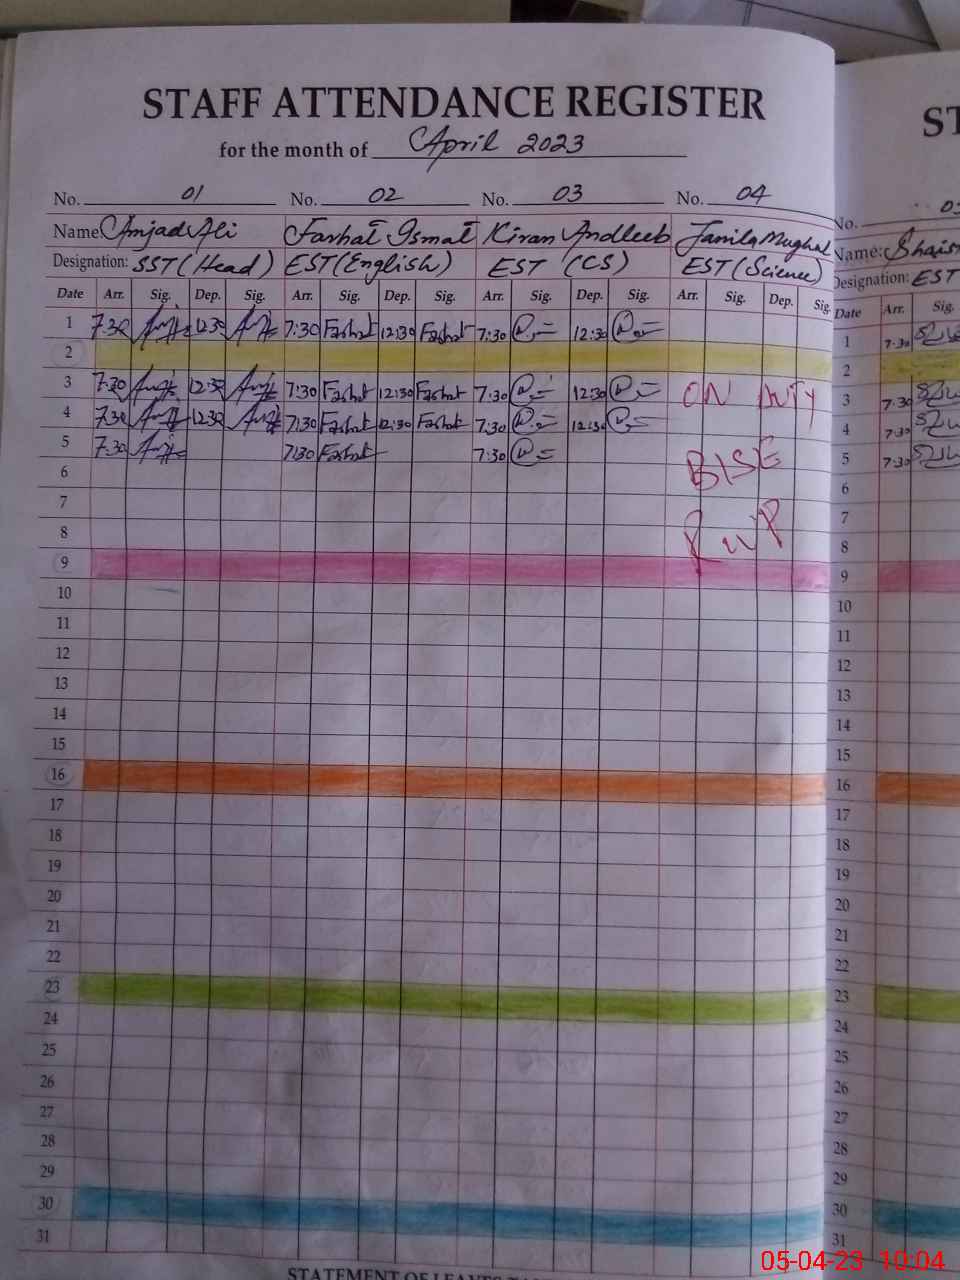 STAFF ATTENDANCE REGISTER
for the month of April 2023
No. 01 No. 02 No. 03 No. 04
Name Amjad Ali Farhat Ismat Kiran Andleeb Jamila Mughal
Designation: SST (Head) EST (English) EST (CS) EST (Science)
Date Arr. Sig. Dep. Sig. Arr. Sig. Dep. Sig. Arr. Sig. Dep. Sig. Arr. Sig. Dep. Sig.
1 7:30 12:30 7:30 Farhat 12:30 Farhat 7:30 12:30
2
3 7:30 12:30 7:30 Farhat 12:30 Farhat 7:30 12:30 ON DUTY
4 7:30 12:30 7:30 Farhat 12:30 Farhat 7:30 12:30
5 7:30 7:30 Farhat 7:30 BISE
6
7 RWP
8
9
10
11
12
13
14
15
16
17
18
19
20
21
22
23
24
25
26
27
28
29
30
31
ST
No.
Name:
Designation: EST
Date Arr. Sig.
1 7:30
2
3 7:30
4 7:30
5 7:30
6
7
8
9
10
11
12
13
14
15
16
17
18
19
20
21
22
23
24
25
26
27
28
29
30
31
STATEMENT OF LEAVES
05-04-23 10:04